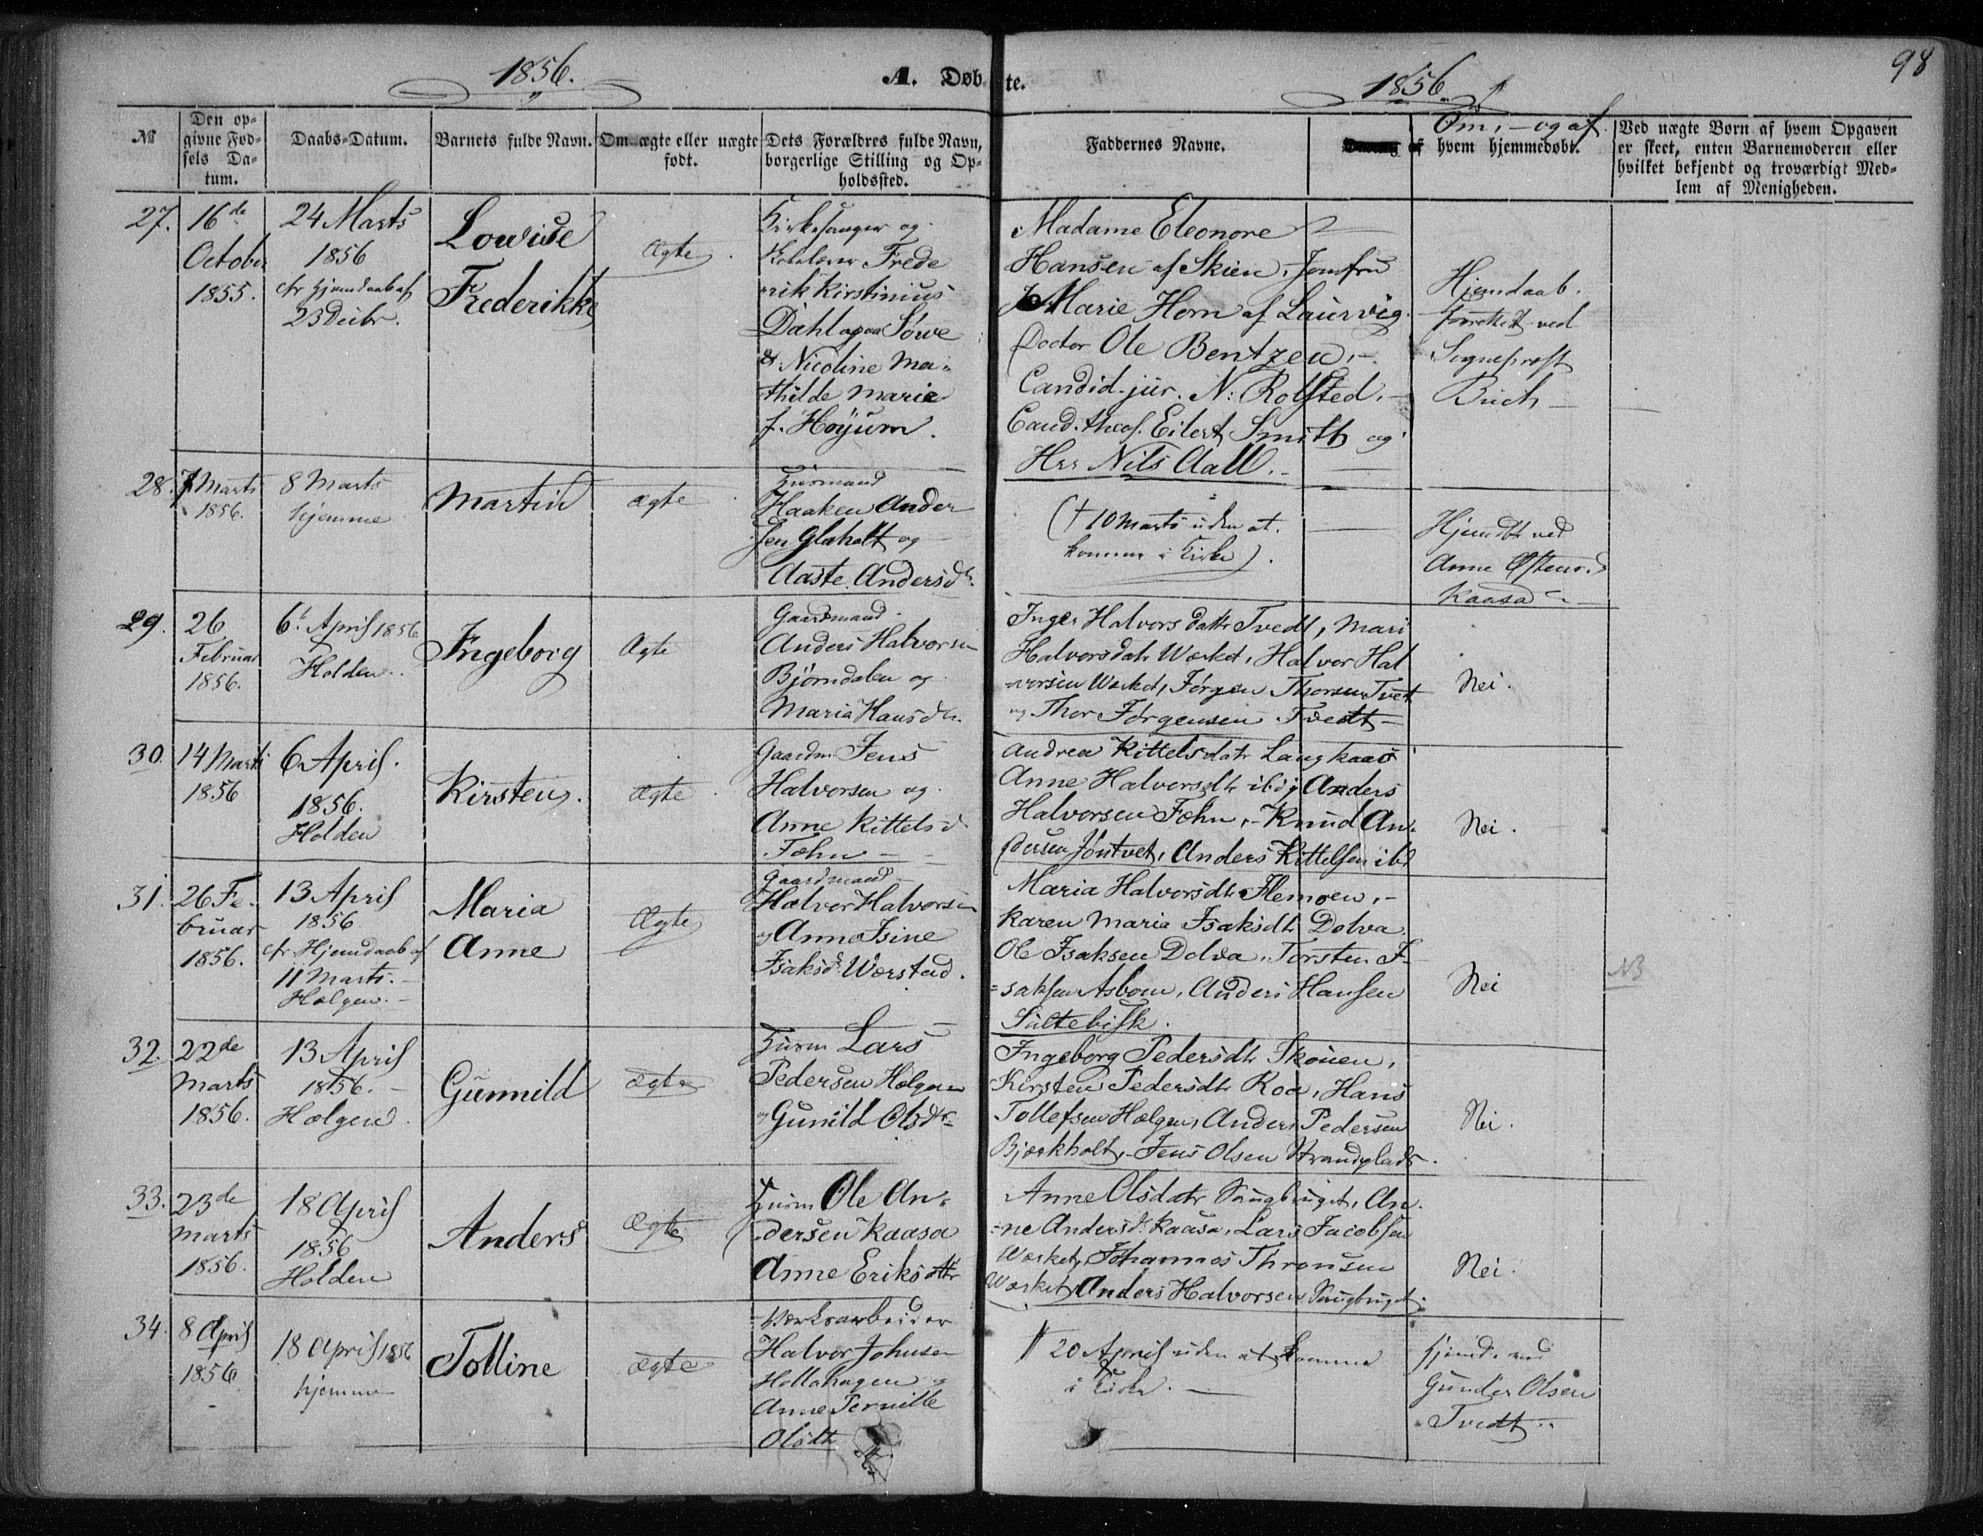 98
1856.
A. Døb-
te.
1856.
№
Den op-
givne Fød-
sels Da-
tum.
Daabs-Datum.
Barnets fulde Navn.
Om ægte eller uægte
født.
Dets Forældres fulde Navn,
borgerlige Stilling og Op-
holdssted.
Faddernes Navne.
Om, - og af
af hvem hjemmedøbt.
Ved uægte Børn af hvem Opgaven
er skeet, enten Barnemoderen eller
hvilket bekjendt og troværdigt Med-
lem af Menigheden.
27.
16de
October
1855.
24 Marts
1856
efr hjemdaab af
23 Decbr.
Lowise
Frederikke
Ægte
Kirkesanger og
Frede
rik Kirstinius
Dahl
& Nicoline Ma-
thilde Marie
f. Høyum.
Madame Eleonore
Hansen af Skien, Jomfru
Marie Horn af Laurvig
Doctor Ole Bentzen,
Candid. jur. N: Rolsted.
Cand. theol. Eilert Smith og
Hrr Nils Aall.
Hjemdaab.
forrettet ved
Sognepræst
Buch
28.
7 Marts
1856.
8 Marts
hjemme
Martin
ægte
Huusmand
Haaken Ander
sen Glaholt og
Aaste Andersdr.
(† 10 Marts uden at
komme i Kirke).
Hjemdbt ved
Anne Østensd.
Kaasa
29.
26
Februar
1856.
6t April 1856
Holden.
Ingeborg
Ægte
Gaardmand
Anders Halvorsen
Bjørndalen og
Maria Hansdr.
Inger Halvorsdatr Tvedt, Mari
Halvorsdatr Wærket, Halvor Hal
vorsen Wærket, Jørgen Thorsen Tvedt
og Thor Jørgensen Tvedt
Nei.
30.
14 Marts
1856
6 April.
1856.
Holden
Kirsten.
Ægte
Gaardm Jens
Halvorsen og
Anne Kittelsd
Fæhn
Andrea Kittelsdatr Langkaas
Anne Halvorsdtr ibd, Anders
Halvorsen Fæhn, Knud An-
dersen Jøntvet, Anders Kittelsen ibd
Nei.
31.
26 Fe-
bruar
1856.
13 April
1856
efr Hjemdaab af
11 Marts.
Hælgen.
Maria
Anne
Ægte
Gaardmand
Halvor Halvorsen
og Anne Isine
Isaksd. Wærstad.
Maria Halvorsdtr Flemoen,
Karen Maria Isaksdtr Dolva
Ole Isaksen Dolva, Torsten I-
saksen Asbom, Anders Hansen
Sältebisk.
Nei
NB
32.
22de
Marts
1856.
13 April
1856.
Hælgen.
Gunnild
Ægte
Huusm Lars
Pedersen Hælgen
og Gunild Olsdtr
Ingeborg Pedersdtr Skouen,
Kirsten Pedersdtr Roa, Hans
Tollefsen Hælgen, Anders Pedersen
Bjerkholt, Jens Olsen Strandplads.
Nei.
33.
23de
Marts
1856.
18 April
1856
Holden
Anders
Ægte
Huusm Ole An-
dersen Kaasa
Anne Eriksdtr
Anne Olsdatr Saugbruget, An-
ne Andersd. Kaasa, Lars Jacobsen
Wærket, Johannes Thronsen
Wærket, Anders Halvorsen Saugbruget
Nei.
34.
8 April
1856
18 April 1856
hjemme
Tolline
ægte
Værksarbeider
Halvor Johnsen
Hollahagen og
Anne Pernille
Olsdtr
† 20 April uden at komme
i Kirke.
hjemd. ved
Gunder Olsen
Tvedt